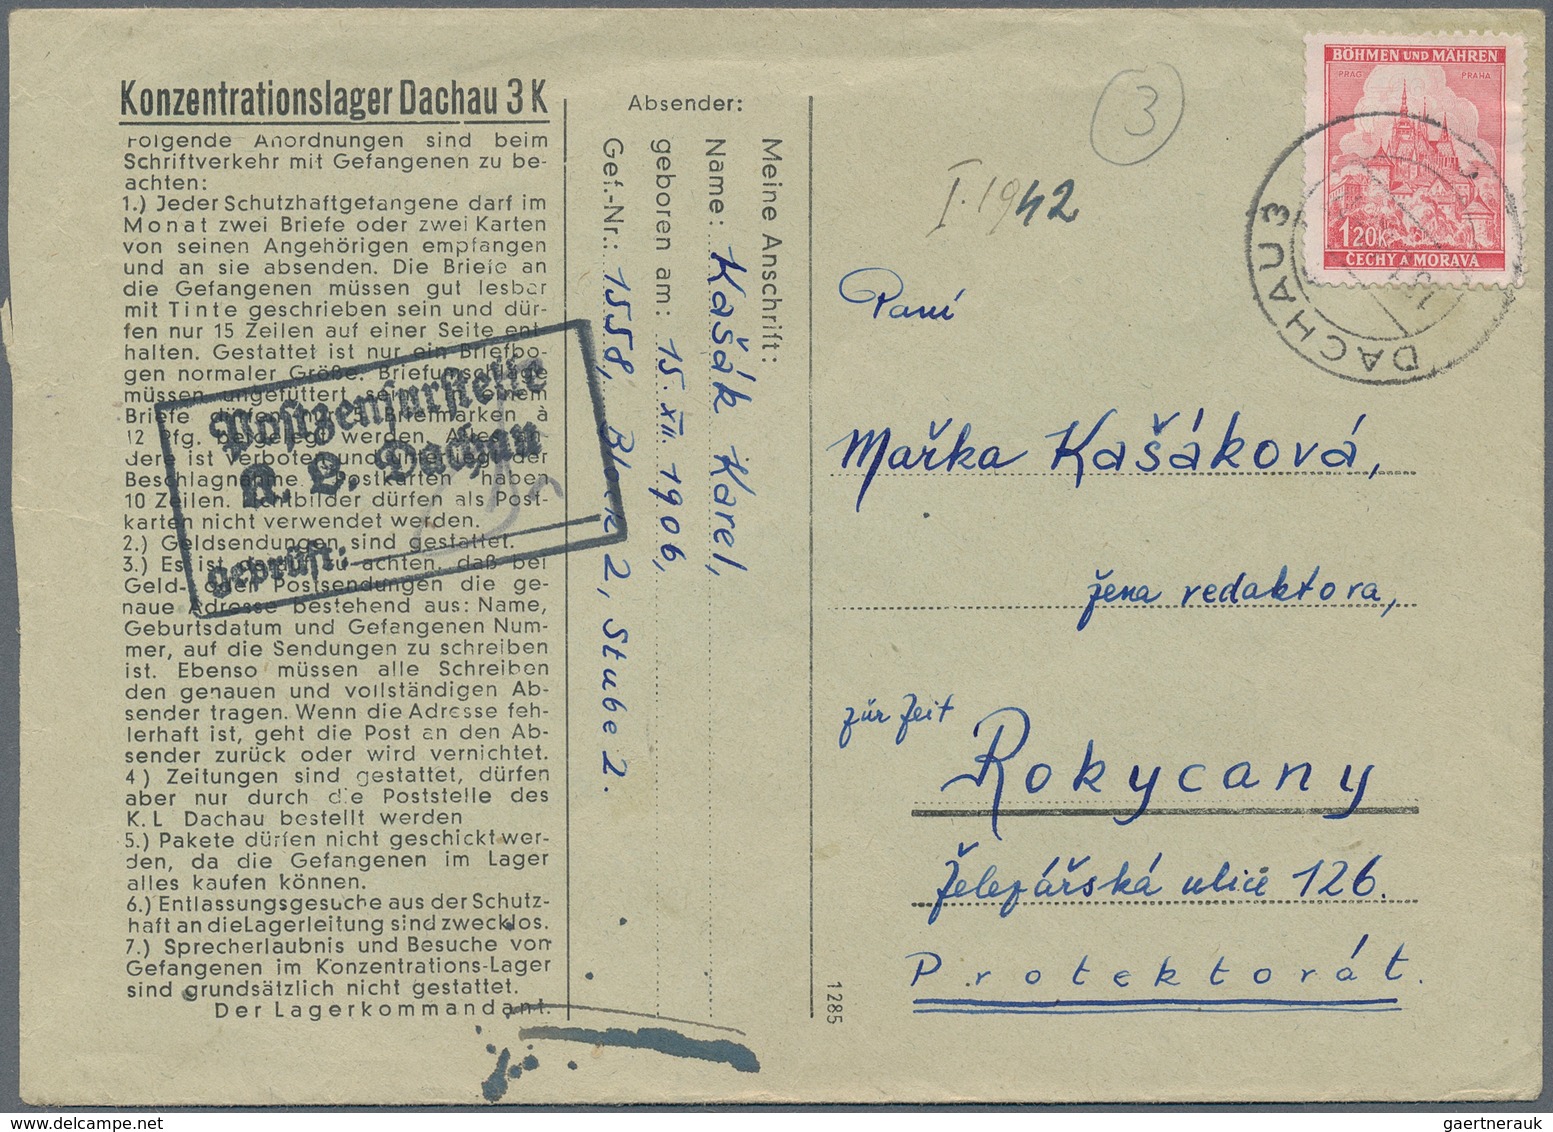 Konzentrationslager Dachau 3 K
Folgende Anordnungen sind beim
Schriftverkehr mit Gefangenen zu be-
achten:
1.) Jeder Schutzhaftgefangene darf im
Monat zwei Briefe oder zwei Karten
von seinen Angehörigen empfangen
und an sie absenden. Die Briefe an
die Gefangenen müssen gut lesbar
mit Tinte geschrieben sein und dür-
fen nur 15 Zeilen auf einer Seite ent-
halten. Gestattet ist nur ein Briefbo-
gen normaler Größe. Briefumschläge
müssen ungefüttert sein. In
Briefe dürfen nur 5 Briefmarken à
12 Pfg. beigelegt werden.
ist verboten und unterliegt der
Beschlagnahme. Postkarten haben
10 Zeilen. Lichtbilder dürfen als Post-
karten nicht verwendet werden.
2.) Geldsendungen sind gestattet.
3.) Es ist zu achten, daß bei
Geld- oder Postsendungen die ge-
naue Adresse bestehend aus: Name,
Geburtsdatum und Gefangenen Num-
mer, auf die Sendungen zu schreiben
ist. Ebenso müssen alle Schreiben
den genauen und vollständigen Ab-
sender tragen. Wenn die Adresse feh-
lerhaft ist, geht die Post an den Ab-
sender zurück oder wird vernichtet.
4) Zeitungen sind gestattet, dürfen
aber nur durch die Poststelle des
K. L Dachau bestellt werden
5.) Pakete dürfen nicht geschickt wer-
den, da die Gefangenen im Lager
alles kaufen können.
6.) Entlassungsgesuche aus der Schutz-
haft an die Lagerleitung sind zwecklos.
7.) Sprecherlaubnis und Besuche von
Gefangenen im Konzentrations-Lager
sind grundsätzlich nicht gestattet.
Der Lagerkommandant.
Postzensurstelle
K. L. Dachau
geprüft:
Absender:
Meine Anschrift:
Name: Kašák Karel,
geboren am: 15. XII. 1906,
Gef.-Nr.: 1558, Block 2, Stube 2.
1285
3
I. 1942
BÖHMEN UND MÄHREN
PRAG PRAHA
1.20K
ČECHY A MORAVA
DACHAU 3
Paní
Mařka Kašáková,
žena redaktora,
zür Zeit
Rokycany
Železářská ulice 126.
Protektorát.
gaertnerauk @ delcampe.net